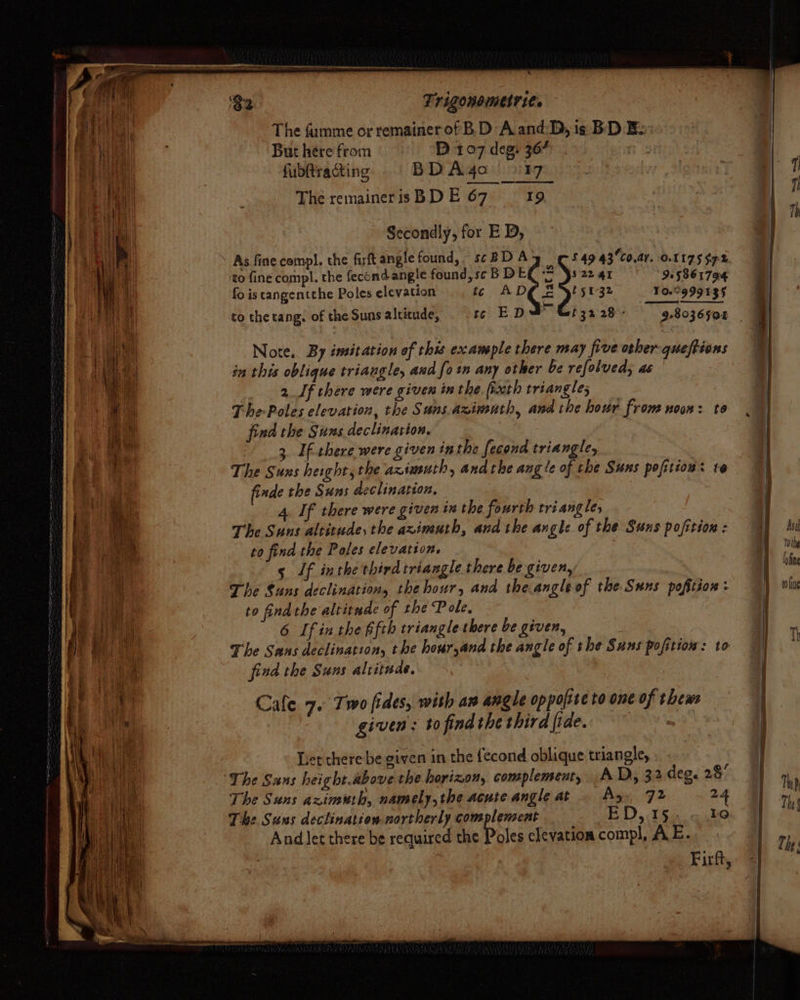 82 Trigonometrie.
The ſumme or remainer of B D A and D, is B D E:
But here from D 107 deg. 36ʹ
ſubſtracting B D A 40 17
The remainer is B D E 67 19
Secondly, for E D,
As ſine compl. the firſt angle found, sc B D A s 49 43 co.ar. 0.1175572
to ſine compl. the ſecond angle found, sc B D E s 22 41 9.5861794
ſo is tangent the Poles elevation tc A D t 51 32 10.0999135
to the tang. of the Suns altitude, tc E D t 32 28 9.8036501
Note, By imitation of this example there may five other queſtions
in this oblique triangle, and ſo in any other be reſolved, as
2 If there were given in the ſixth triangle,
The Poles elevation, the Suns azimuth, and the hour from noon: to
find the Suns declination.
3 If there were given in the ſecond triangle,
The Suns height, the azimuth, and the angle of the Suns poſition: to
finde the Suns declination.
4 If there were given in the fourth triangle,
The Suns altitude, the azimuth, and the angle of the Suns poſition:
to find the Poles elevation.
5 If in the third triangle there be given,
The Suns declination, the hour, and the angle of the Suns poſition:
to find the altitude of the Pole.
6 If in the fifth triangle there be given,
The Suns declination, the hour, and the angle of the Suns poſition: to
find the Suns altitude.
Caſe 7. Two ſides, with an angle oppoſite to one of them
given: to find the third ſide.
Let there be given in the ſecond oblique triangle,
The Suns height above the horizon, complement, A D, 32 deg. 28ʹ
The Suns azimuth, namely, the acute angle at A, 72 24
The Suns declination northerly complement E D, 15 10
And let there be required the Poles elevation compl, A E.
Firſt,